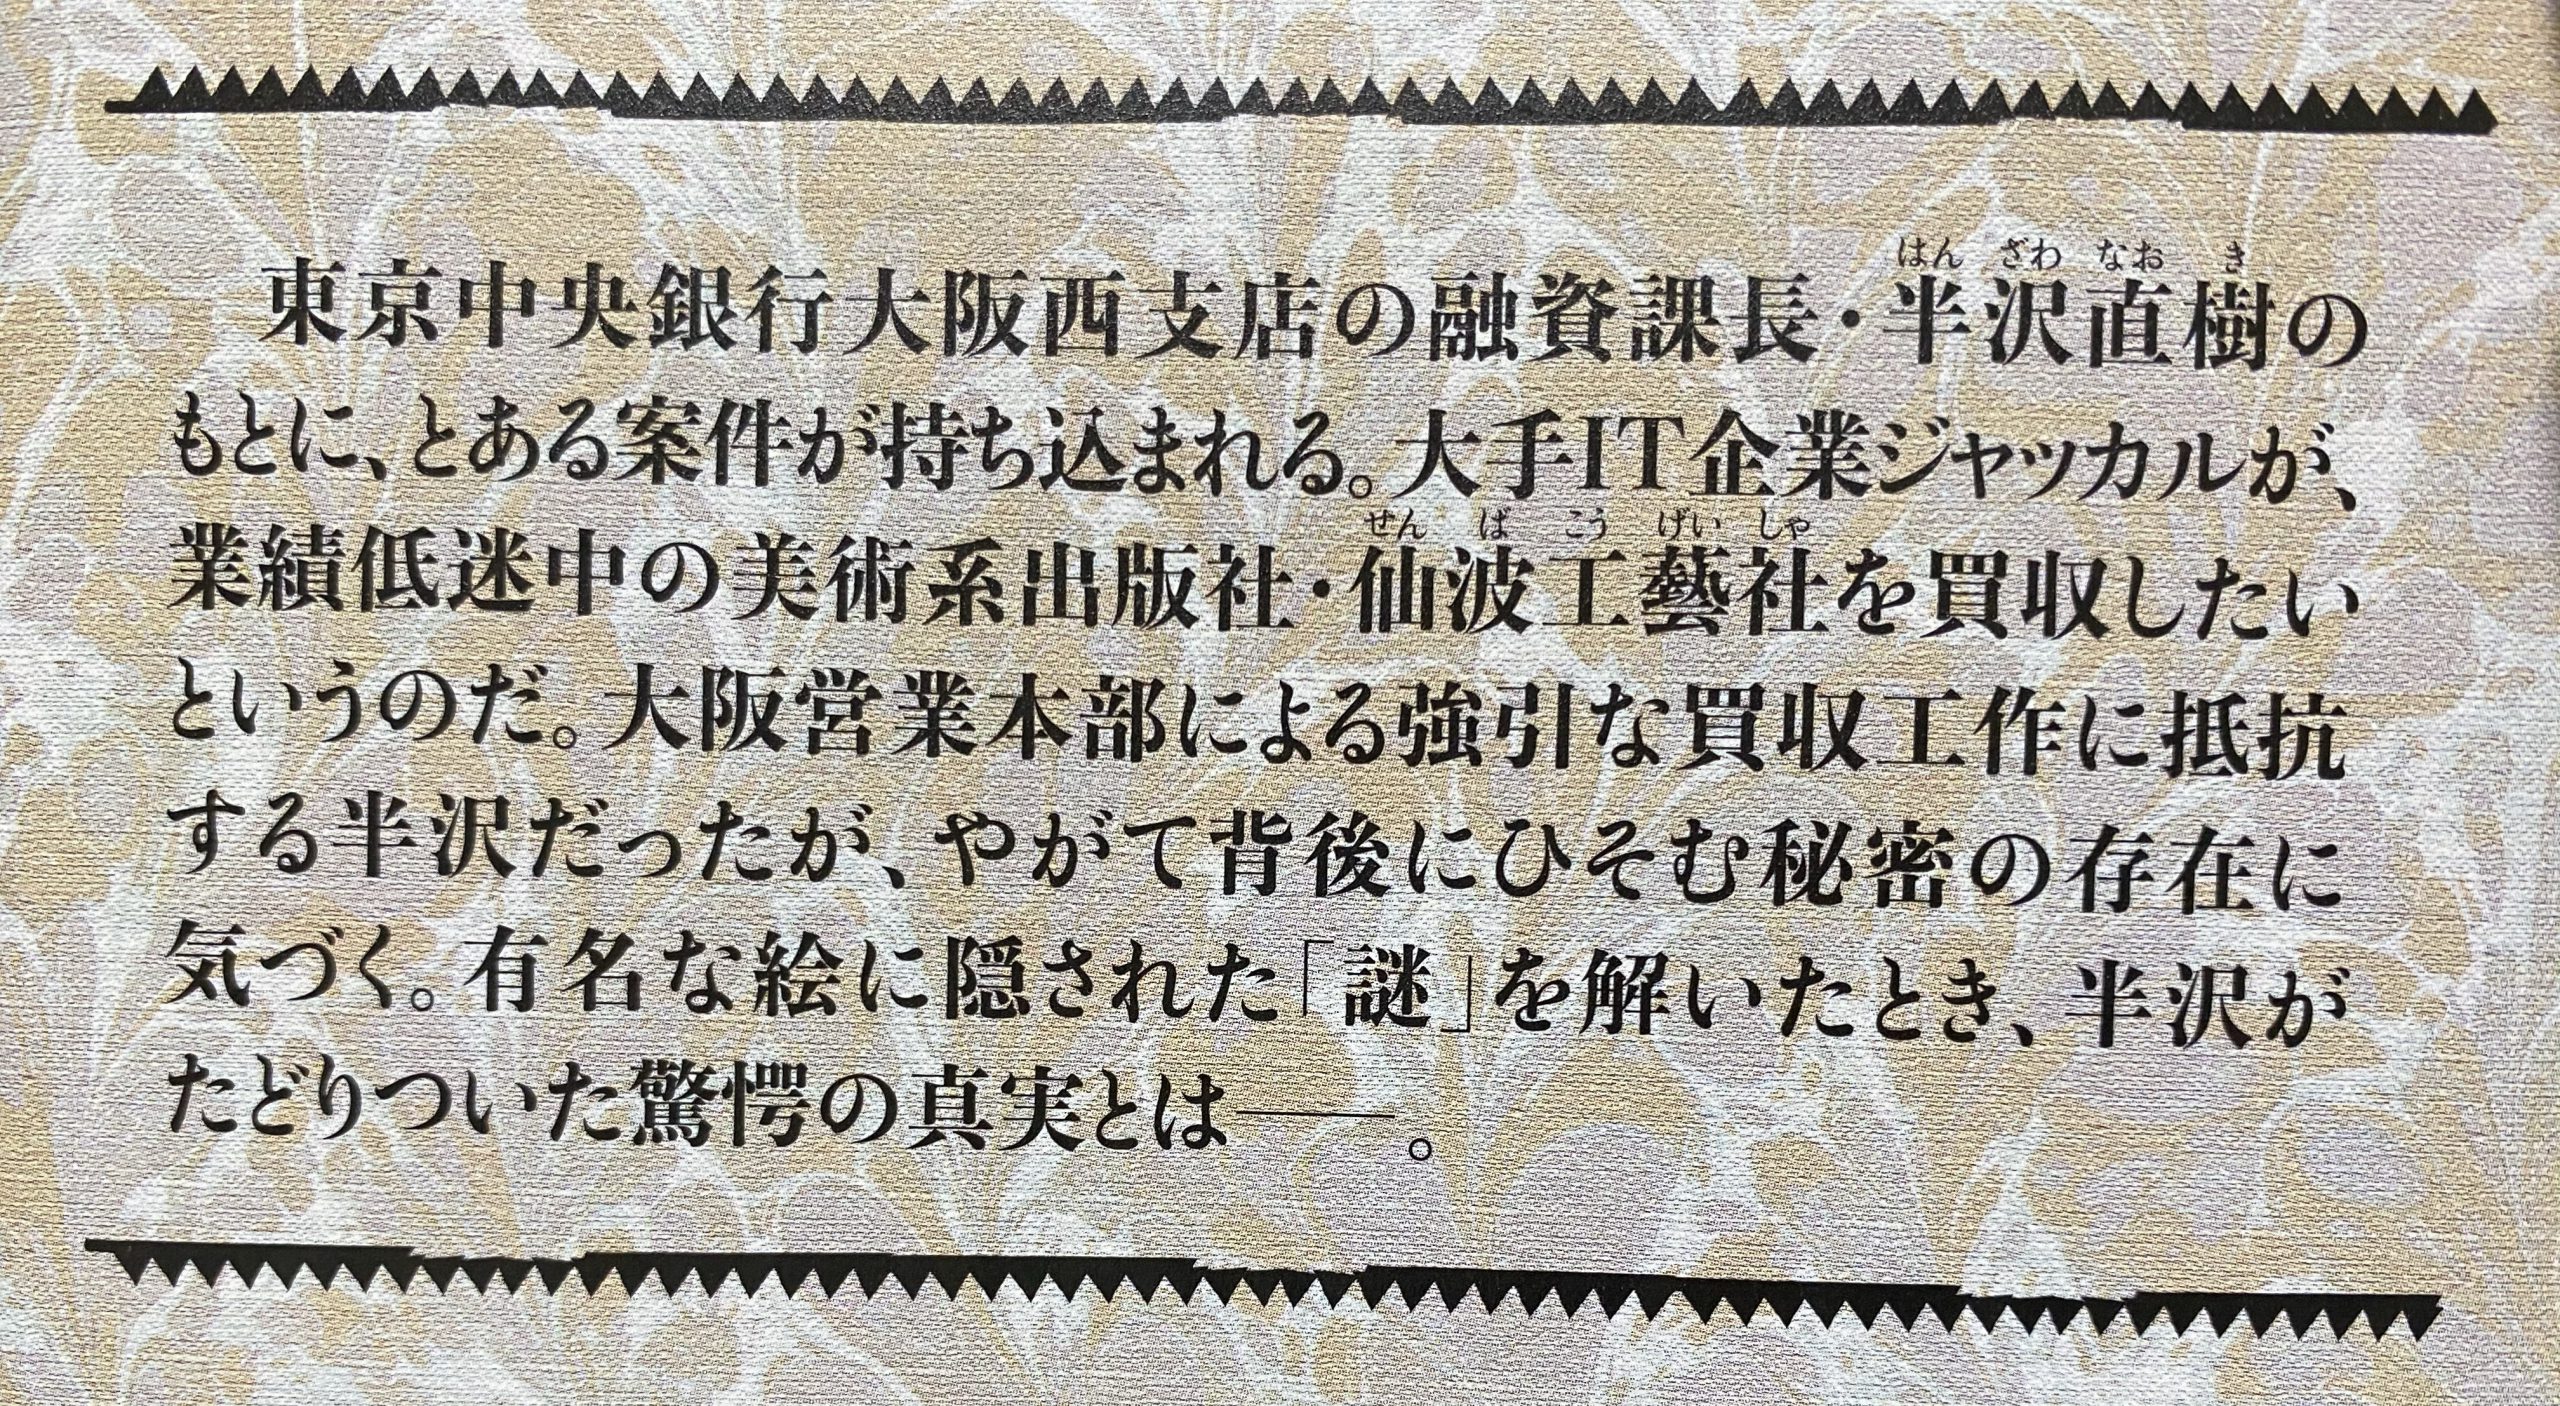 東京中央銀行大阪西支店の融資課長・半沢直樹の
もとに、とある案件が持ち込まれる。大手IT企業ジャッカルが、
業績低迷中の美術系出版社・仙波工藝社を買収したい
というのだ。大阪営業本部による強引な買収工作に抵抗
する半沢だったが、やがて背後にひそむ秘密の存在に
気づく。有名な絵に隠された「謎」を解いたとき、半沢が
たどりついた驚愕の真実とは——。